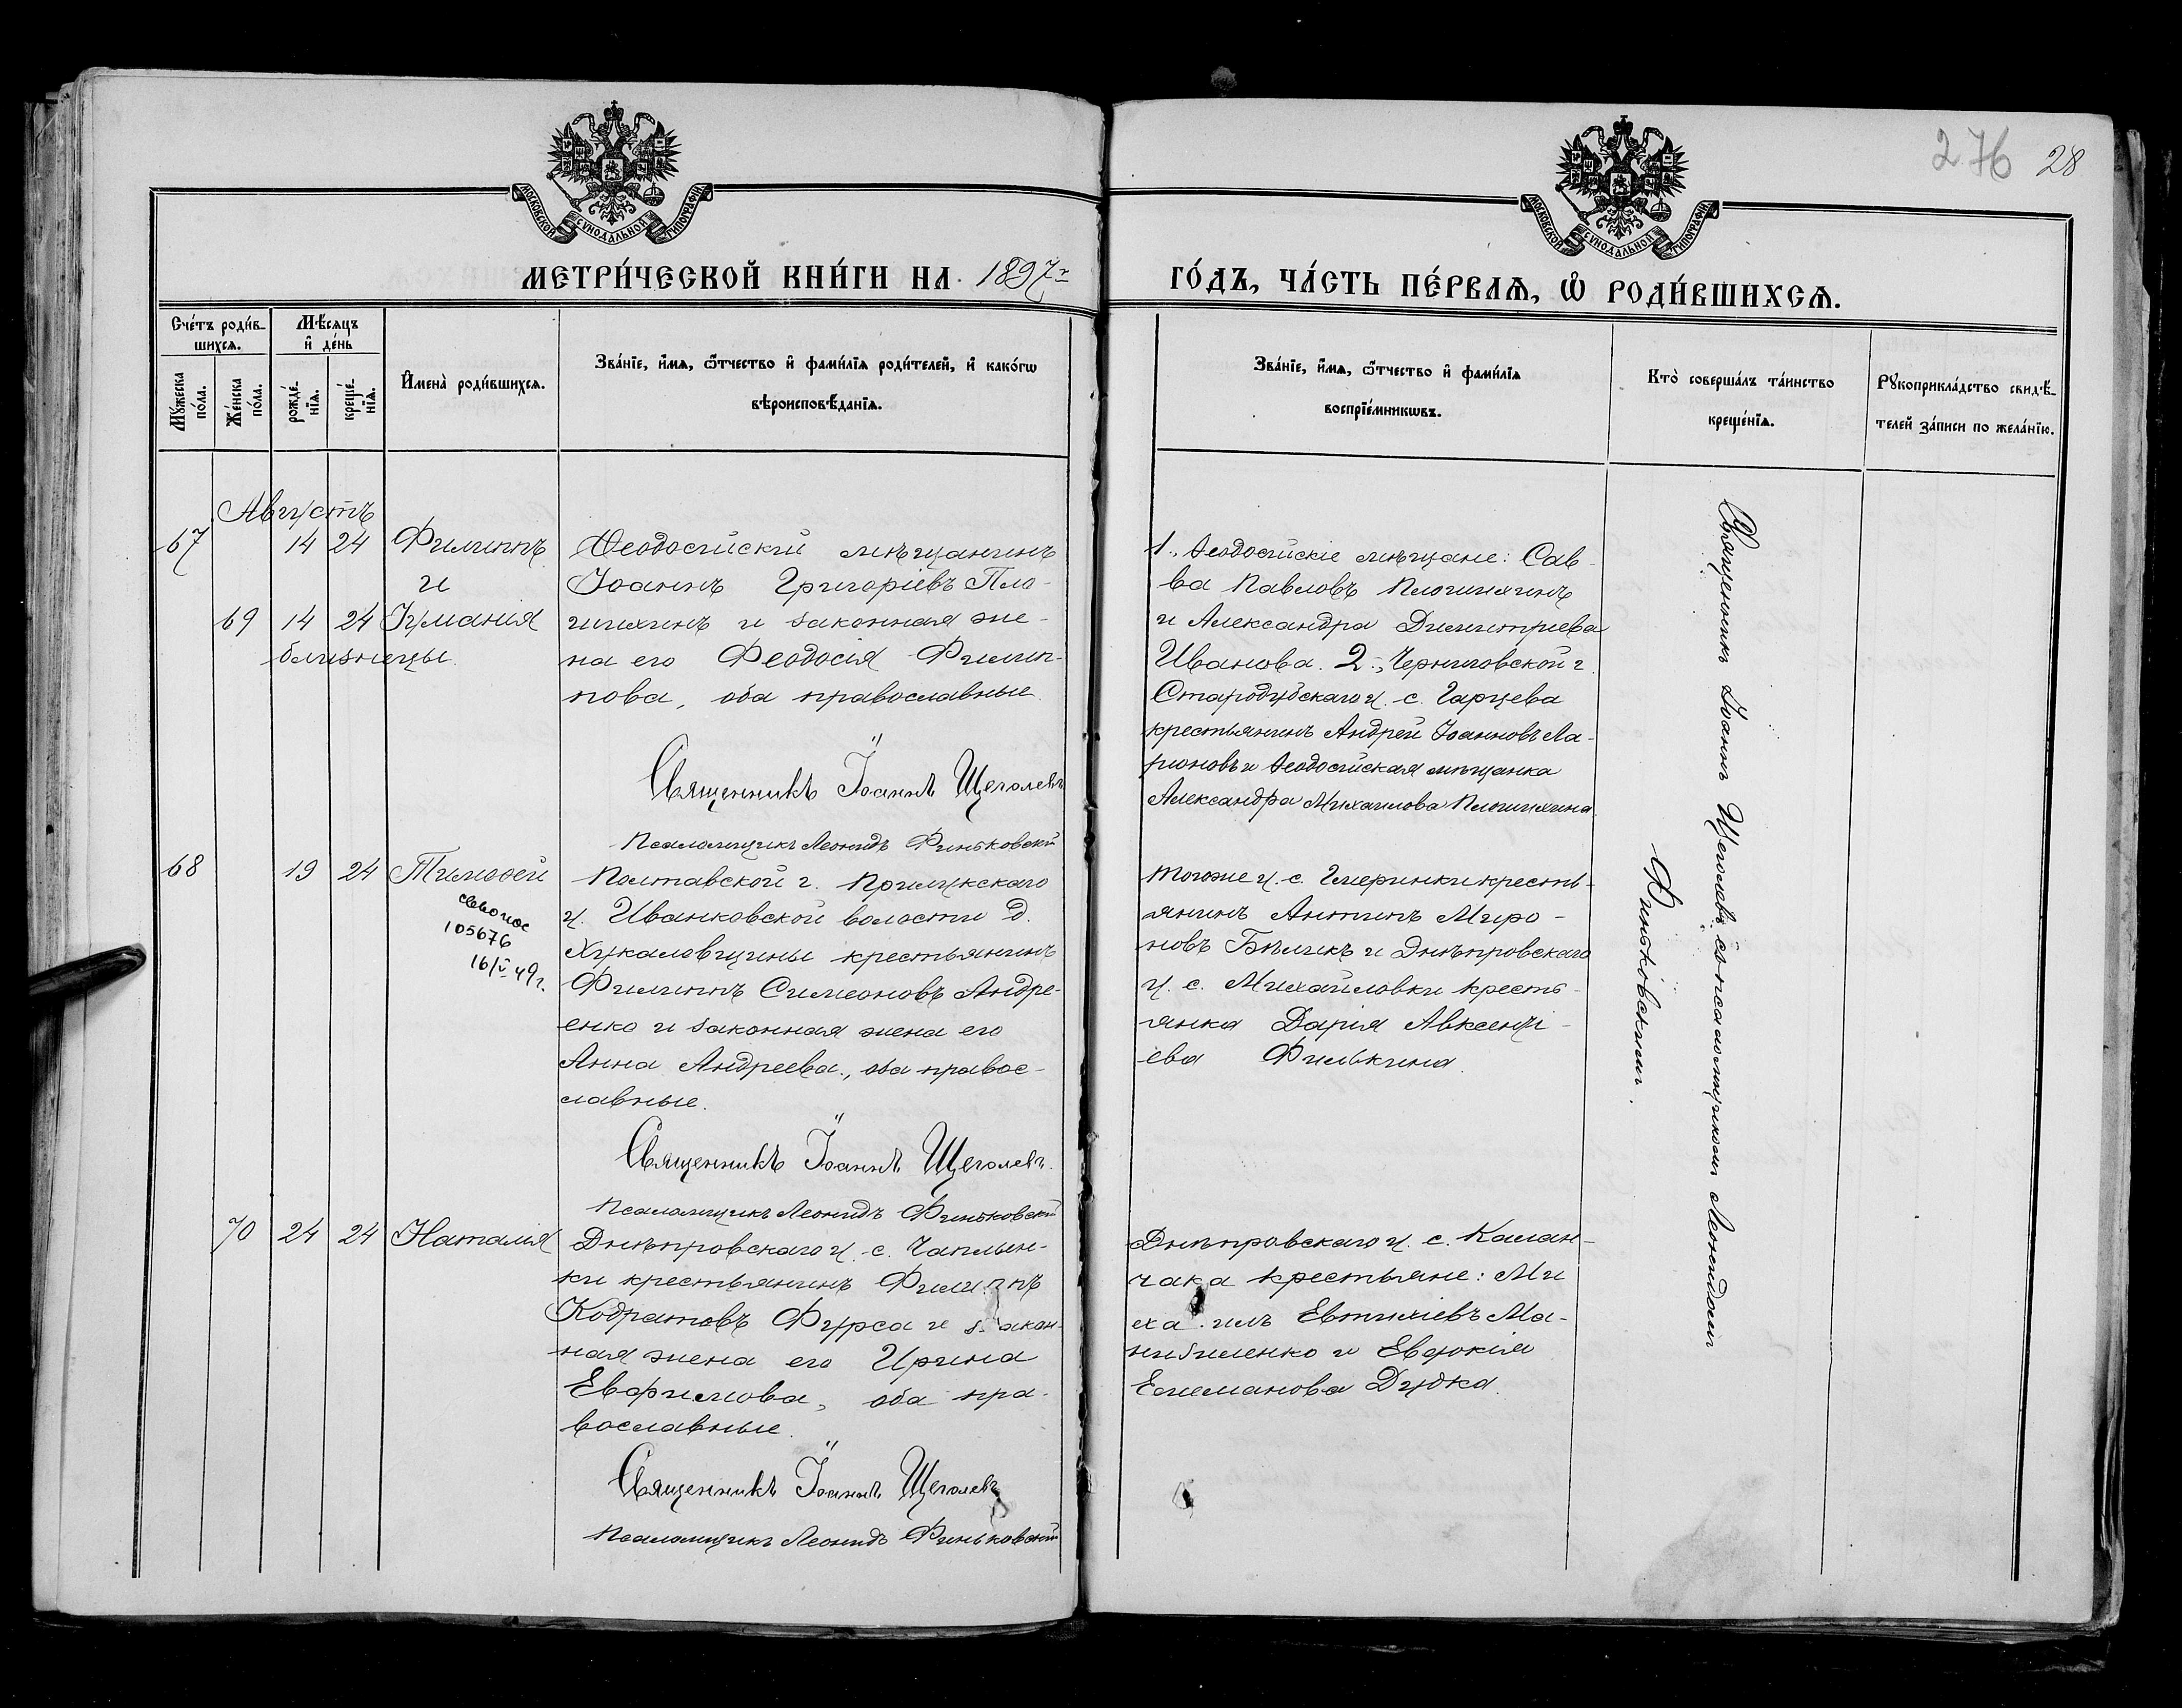 276 28
МОСКОВСКОЙ СУНОДАЛЬНОЙ ТИПОГРАФІИ
МОСКОВСКОЙ СУНОДАЛЬНОЙ ТИПОГРАФІИ
МЕТРИ́ЧЕСКОЙ КНИ́ГИ НА 1897 г.
ГО́ДЪ, ЧА́СТЬ ПЕ́РВАѦ, Ѡ҆ РОДИ́ВШИХСѦ.
Сче́тъ роди́в-
шихсѧ.
Мѣ́сѧцъ
и҆ де́нь
Мꙋ́жеска
по́ла.
Же́нска
по́ла.
рожде́-
нїѧ.
креще́-
нїѧ.
И҆мена̀ роди́вшихсѧ.
Зва́нїе, и҆́мѧ, ѻ҆́тчество и҆ фами́лїѧ роди́телей, и҆ како́гѡ
вѣроисповѣ́данїѧ.
Зва́нїе, и҆́мѧ, ѻ҆́тчество и҆ фами́лїѧ
воспрїе́мникѡвъ.
Кто̀ соверша́лъ та́инство
креще́нїѧ.
Рꙋкоприкла́дство свидѣ́-
телей за́писи по жела́нїю.
Августъ
67 14 24 Филиппъ
и
69 14 24 Іуманія
близнецы.
Ѳеодосійскій мѣщанинъ
Іоаннъ Григоріевъ Пло-
шихинъ и законная же-
на его Феодосія Филип-
пова, оба православные.
Священникъ Іоаннъ Щеголевъ
Псаломщикъ Леонидъ Финьковскій
1., Ѳеодосійскіе мѣщане: Сав-
ва Павловъ Плошихинъ
и Александра Димитріева
Иванова. 2., Черниговской г.
Стародубскаго у. с. Гарцева
крестьянинъ Андрей Іоанновъ Ла-
ріоновъ и Ѳеодосійская мѣщанка
Александра Михаилова Плошихина
Священникъ Іоаннъ Щеголевъ со псаломщикомъ Леонидомъ
Финьковскимъ.
68 19 24 Тимоѳей
105676
16/V 49 г.
Полтавской г. Прилукскаго
у. Иванковской волости д.
Жукаловщины крестьянинъ
Филиппъ Симеоновъ Андре-
енко и законная жена его
Анна Андреева., оба правос-
лавные.
Священникъ Іоаннъ Щеголевъ.
Псаломщикъ Леонидъ Финьковскій
Тогоже у. с. кресть-
янинъ Антипъ Миро-
новъ Бѣликъ и Днѣпровскаго
у. с. Михайловки кресть-
янка Дарія Авксенті-
ева Филькина.
70 24 24 Наталія
Днѣпровскаго у. с. Чаплын-
ки крестьянинъ Филиппъ
Кодратовъ Фурса и закон-
ная жена его Ирина
Евфимова, оба пра-
вославные.
Священникъ Іоаннъ Щеголевъ
Псаломщикъ Леонидъ Финьковскій
Днѣпровскаго у. с. Калан-
чака крестьяне: Ми
хаилъ Евтихіевъ Ма-
и Евдокія
Дудка.